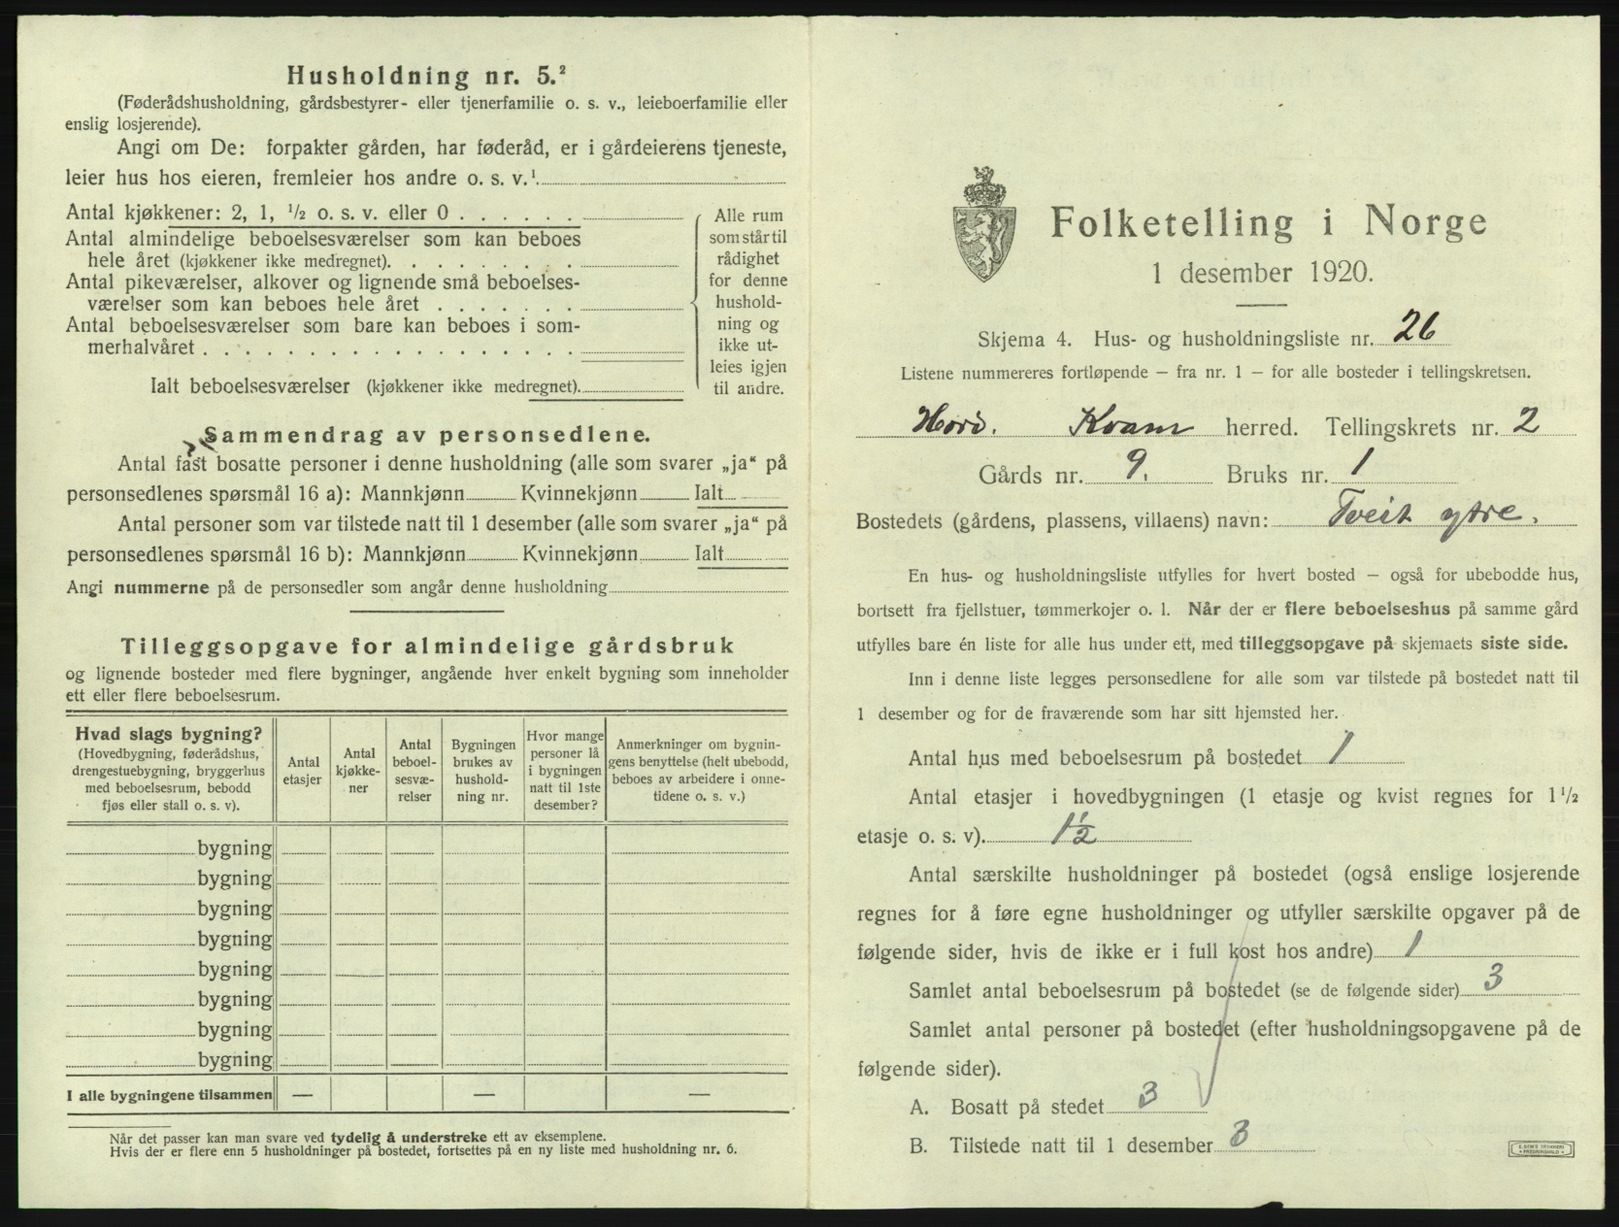 Husholdning nr. 5.²
(Føderådshusholdning, gårdsbestyrer- eller tjenerfamilie o. s. v., leieboerfamilie eller
enslig losjerende).
Angi om De: forpakter gården, har føderåd, er i gårdeierens tjeneste,
leier hus hos eieren, fremleier hos andre o. s. v.¹
Antal kjøkkener: 2, 1, ½ o. s. v. eller 0 . . . . . .
Antal almindelige beboelsesværelser som kan beboes
hele året (kjøkkener ikke medregnet). . . . . . . .
Antal pikeværelser, alkover og lignende små beboelses-
værelser som kan beboes hele året . . . . . . .
Antal beboelsesværelser som bare kan beboes i som-
merhalvåret . . . . . . . . . . . . . . . . . .
Ialt beboelsesværelser (kjøkkener ikke medregnet).
Alle rum
som står til
rådighet
for denne
hushold-
ning og
ikke ut-
leies igjen
til andre.
Sammendrag av personsedlene.
Antal fast bosatte personer i denne husholdning (alle som svarer „ja“ på
personsedlenes spørsmål 16 a): Mannkjønn Kvinnekjønn Ialt
Antal personer som var tilstede natt til 1 desember (alle som svarer „ja“ på
personsedlenes spørsmål 16 b): Mannkjønn Kvinnekjønn Ialt
Angi nummerne på de personsedler som angår denne husholdning
Tilleggsopgave for almindelige gårdsbruk
og lignende bosteder med flere bygninger, angående hver enkelt bygning som inneholder
ett eller flere beboelsesrum.
Hvad slags bygning?
(Hovedbygning, føderådshus,
drengestuebygning, bryggerhus
med beboelsesrum, bebodd
fjøs eller stall o. s. v).
Antal
etasjer
Antal
kjøkke-
ner
Antal
beboel-
sesvæ-
relser
Bygningen
brukes av
hushold-
ning nr.
Hvor mange
personer lå
i bygningen
natt til 1ste
desember?
Anmerkninger om bygnin-
gens benyttelse (helt ubebodd,
beboes av arbeidere i onne-
tidene o. s. v.)
bygning
bygning
bygning
bygning
bygning
bygning
bygning
bygning
I alle bygningene tilsammen — — —
Når det passer kan man svare ved tydelig å understreke ett av eksemplene.
Hvis der er flere enn 5 husholdninger på bostedet, fortsettes på en ny liste med husholdning nr. 6.
Folketelling i Norge
1 desember 1920.
Skjema 4. Hus- og husholdningsliste nr. 26
Listene nummereres fortløpende — fra nr. 1 — for alle bosteder i tellingskretsen.
Hord. Kvam herred. Tellingskrets nr. 2
Gårds nr. 9. Bruks nr. 1
Bostedets (gårdens, plassens, villaens) navn: Tveit ytre.
En hus- og husholdningsliste utfylles for hvert bosted — også for ubebodde hus,
bortsett fra fjellstuer, tømmerkojer o. l. Når der er flere beboelseshus på samme gård
utfylles bare én liste for alle hus under ett, med tilleggsopgave på skjemaets siste side.
Inn i denne liste legges personsedlene for alle som var tilstede på bostedet natt til
1 desember og for de fraværende som har sitt hjemsted her.
Antal hus med beboelsesrum på bostedet 1
Antal etasjer i hovedbygningen (1 etasje og kvist regnes for 1 ½
etasje o. s. v). 1½
Antal særskilte husholdninger på bostedet (også enslige losjerende
regnes for å føre egne husholdninger og utfyller særskilte opgaver på de
følgende sider, hvis de ikke er i full kost hos andre) 1
Samlet antal beboelsesrum på bostedet (se de følgende sider) 3
Samlet antal personer på bostedet (efter husholdningsopgavene på de
følgende sider).
A. Bosatt på stedet 3
B. Tilstede natt til 1 desember 3